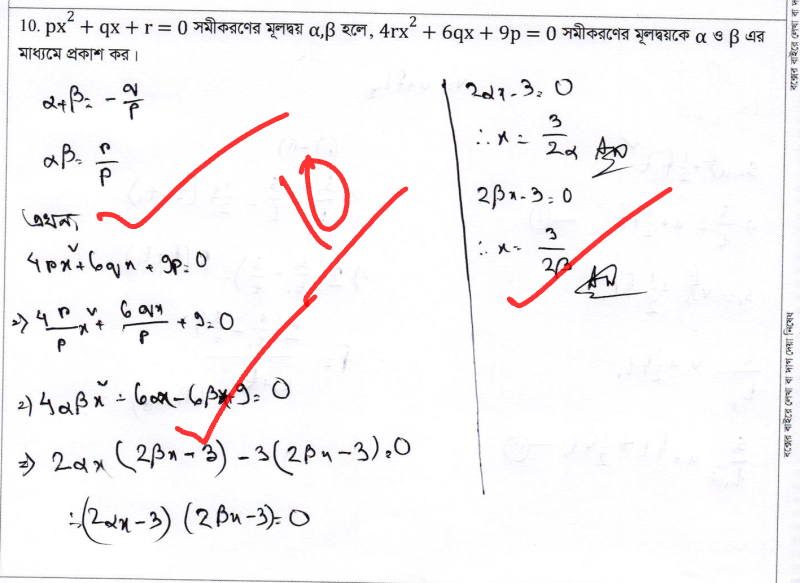 10. px² + qx + r = 0 সমীকরণের মূলদ্বয় α,β হলে, 4rx² + 6qx + 9p = 0 সমীকরণের মূলদ্বয়কে α ও β এর
মাধ্যমে প্রকাশ কর।
α+β = -q/p
αβ = r/p
এখন,
4rx² + 6qx + 9p = 0
⇒ 4r/p x² + 6qx/p + 9 = 0
⇒ 4αβx² - 6αx - 6βx + 9 = 0
⇒ 2αx (2βx - 3) - 3(2βx - 3) = 0
∴ (2αx - 3) (2βx - 3) = 0
2αx - 3 = 0
∴ x = 3/2α Ans
2βx - 3 = 0
∴ x = 3/2β Ans
10
বক্সের বাইরে লেখা বা দাগ দেয়া নিষেধ